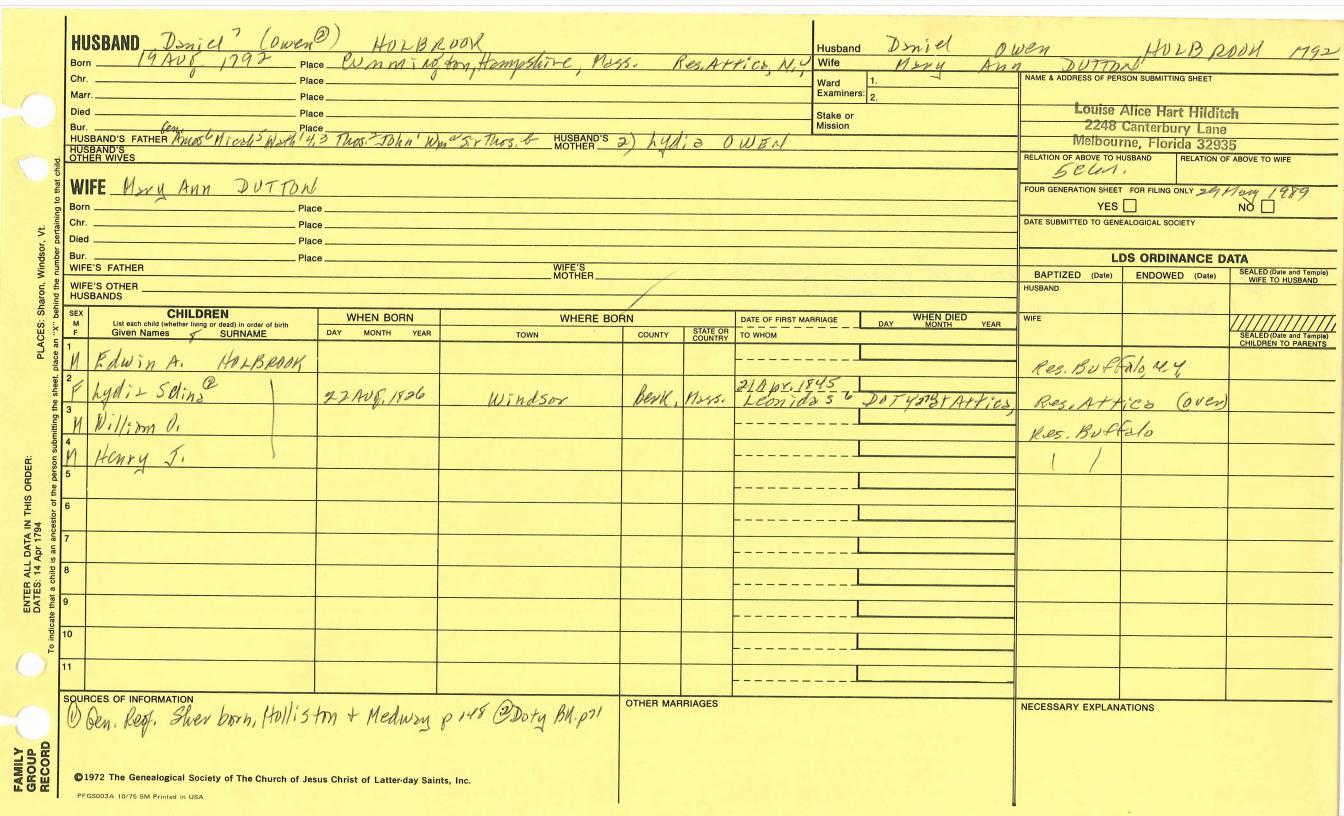 HUSBAND Daniel 7 (Owen②) HOLBROOK
Born 19 AUG 1792 Place Cummington, Hampshire, Mass. Res. Attica, N.Y
Chr. Place
Marr. Place
Died Place
Bur. Place
HUSBAND'S FATHER Gen. Amos 6 Micah 5 Thos. 2 John 1 Wm Sr Thos. HUSBAND'S MOTHER 2) Lydia OWEN
HUSBAND'S OTHER WIVES
WIFE Mary Ann DUTTON
Born Place
Chr. Place
Died Place
Bur. Place
WIFE'S FATHER WIFE'S MOTHER
WIFE'S OTHER HUSBANDS
Husband Daniel Owen HOLBROOK 1792
Wife Mary Ann DUTTON
Ward Examiners: 1.
2.
Stake or Mission
NAME & ADDRESS OF PERSON SUBMITTING SHEET
Louise Alice Hart Hilditch
2248 Canterbury Lane
Melbourne, Florida 32935
RELATION OF ABOVE TO HUSBAND RELATION OF ABOVE TO WIFE
FOUR GENERATION SHEET FOR FILING ONLY 29 May 1989
YES NO
DATE SUBMITTED TO GENEALOGICAL SOCIETY
LDS ORDINANCE DATA
BAPTIZED (Date) ENDOWED (Date) SEALED (Date and Temple) WIFE TO HUSBAND
HUSBAND
WIFE
SEALED (Date and Temple) CHILDREN TO PARENTS
SEX M F
CHILDREN
List each child (whether living or dead) in order of birth
Given Names SURNAME
WHEN BORN
DAY MONTH YEAR
WHERE BORN
TOWN COUNTY STATE OR COUNTRY
DATE OF FIRST MARRIAGE
TO WHOM
WHEN DIED
DAY MONTH YEAR
1 M Edwin A. HOLBROOK Res. Buffalo, N.Y
2 F Lydia Selina② 22 AUG. 1826 Windsor Berk. Mass. 21 Apr. 1845 Leonidas 6 DOTY at Attica, Res. Attica (over)
3 M William O. Res. Buffalo
4 M Henry J.
5
6
7
8
9
10
11
SOURCES OF INFORMATION
① Gen. Reg. Sherborn, Holliston + Medway p 148 ② Doty Bk. p 71
OTHER MARRIAGES
NECESSARY EXPLANATIONS
©1972 The Genealogical Society of The Church of Jesus Christ of Latter-day Saints, Inc.
PFGS003A 10/75 5M Printed in USA
FAMILY GROUP RECORD
ENTER ALL DATA IN THIS ORDER:
DATES: 14 Apr 1794
PLACES: Sharon, Windsor, Vt.
To indicate that a child is an ancestor of the person submitting the sheet, place an "X" behind the number pertaining to that child.